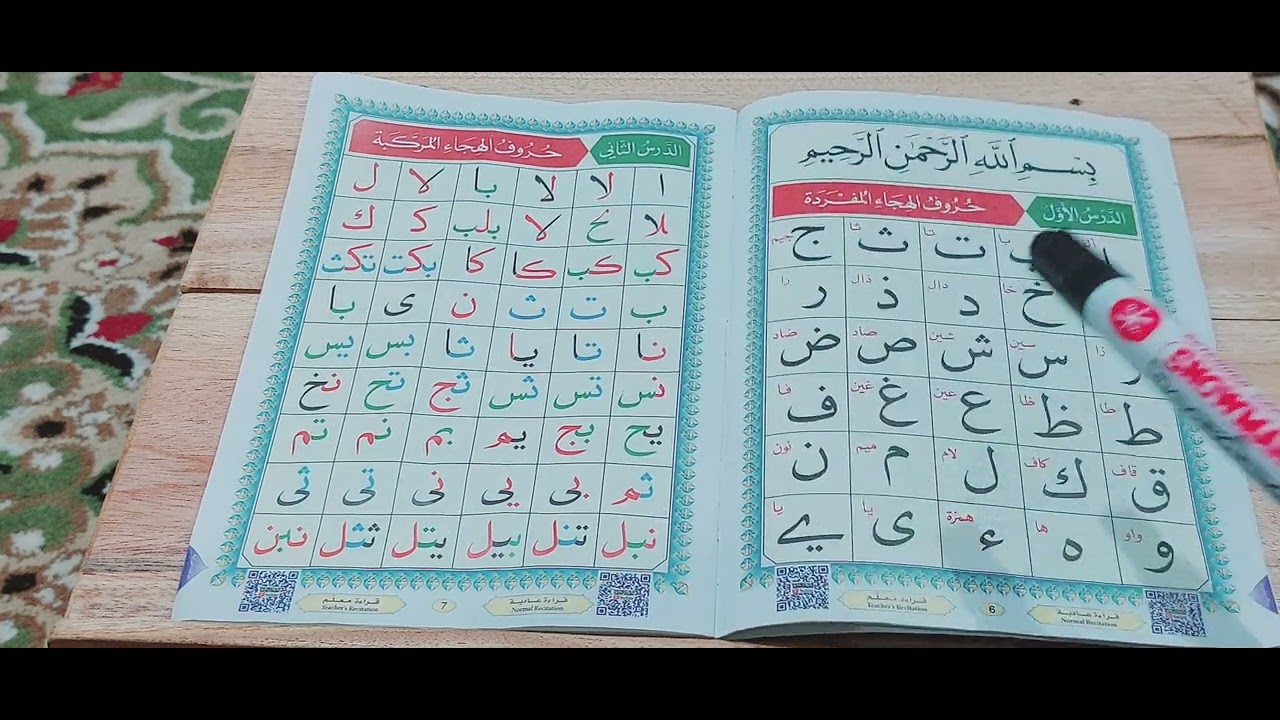 بِسْمِ ٱللَّهِ ٱلرَّحْمَٰنِ ٱلرَّحِيمِ
الدَرسُ الأَوَّلُ حُرُوفُ الهِجَاءِ المُفْرَدَة
ا ب با ت تا ث ثا ج جيم
خ خا د دال ذ ذال ر را
زا س سين ش شين ص صاد ض ضاد
ط طا ظ ظا ع عين غ غين ف فا
ق قاف ك كاف ل لام م ميم ن نون
و واو ه ها ء همزة ى يا ے يا
قراءة عادية
Normal Recitation
6
قراءة معلم
Teacher's Recitation
الدَرسُ الثَّانِي حُرُوفُ الهِجَاءِ المُرَكَّبَة
ا لا لا با لا ل
بلا لا بلب ك ك
كب كب كا كا بكت تكث
ب ت ث ن ى با
نا تا يا ثا بس يس
نس تس ثس ثج تح نخ
يح بج يم بم نم تم
ثم بى يى نى تى ثى
نبل تنل بيل يتل ثثل نبن
قراءة عادية
Normal Recitation
7
قراءة معلم
Teacher's Recitation
SNOWMAN